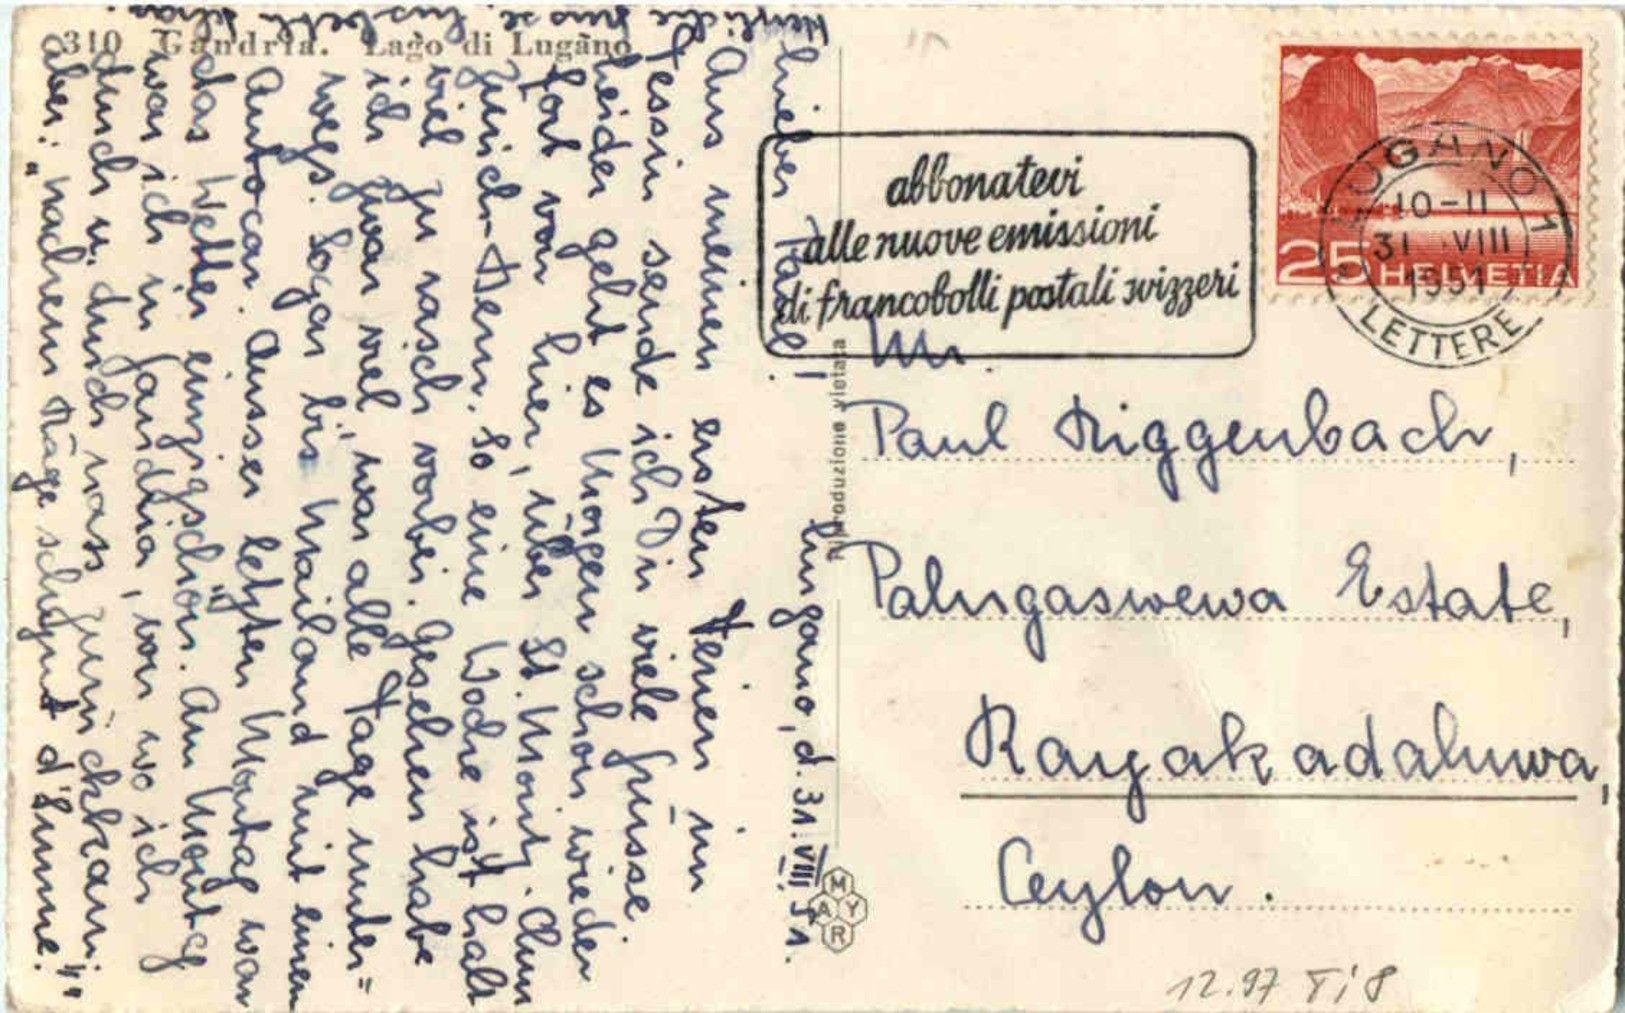 310 Gandria. Lago di Lugano
Lugano, d. 31. VIII 51.
Lieber Paul!
Aus meinen ersten Ferien im
Tessin sende ich Dir viele Grüsse.
Leider geht es Morgen schon wieder
fort von hier, über St. Moritz. Chur
Zürich-Bern. So eine Woche ist halt
viel zu rasch vorbei. Gesehen habe
ich zwar viel, war alle Tage unter=
wegs. Sogar bis Mailand mit einem
Autocar. Ausser letzten Montag war
das Wetter einzigschön. Am Montag
war ich in Gandria, von wo ich
durch u. durch nass zurückkam;
aber: "nachem Räge schiynt d'Sunne!"
Herzliche Grüsse. Lisbeth
abbonatevi
alle nuove emissioni
di francobolli postali svizzeri
LUGANO 1
10-11
31 VIII
1951
LETTERE
25 HELVETIA
Riproduzione vietata
MAYR
Mr.
Paul Riggenbach,
Palugaswewa Estate,
Rayakadaluwa,
Ceylon.
12.97